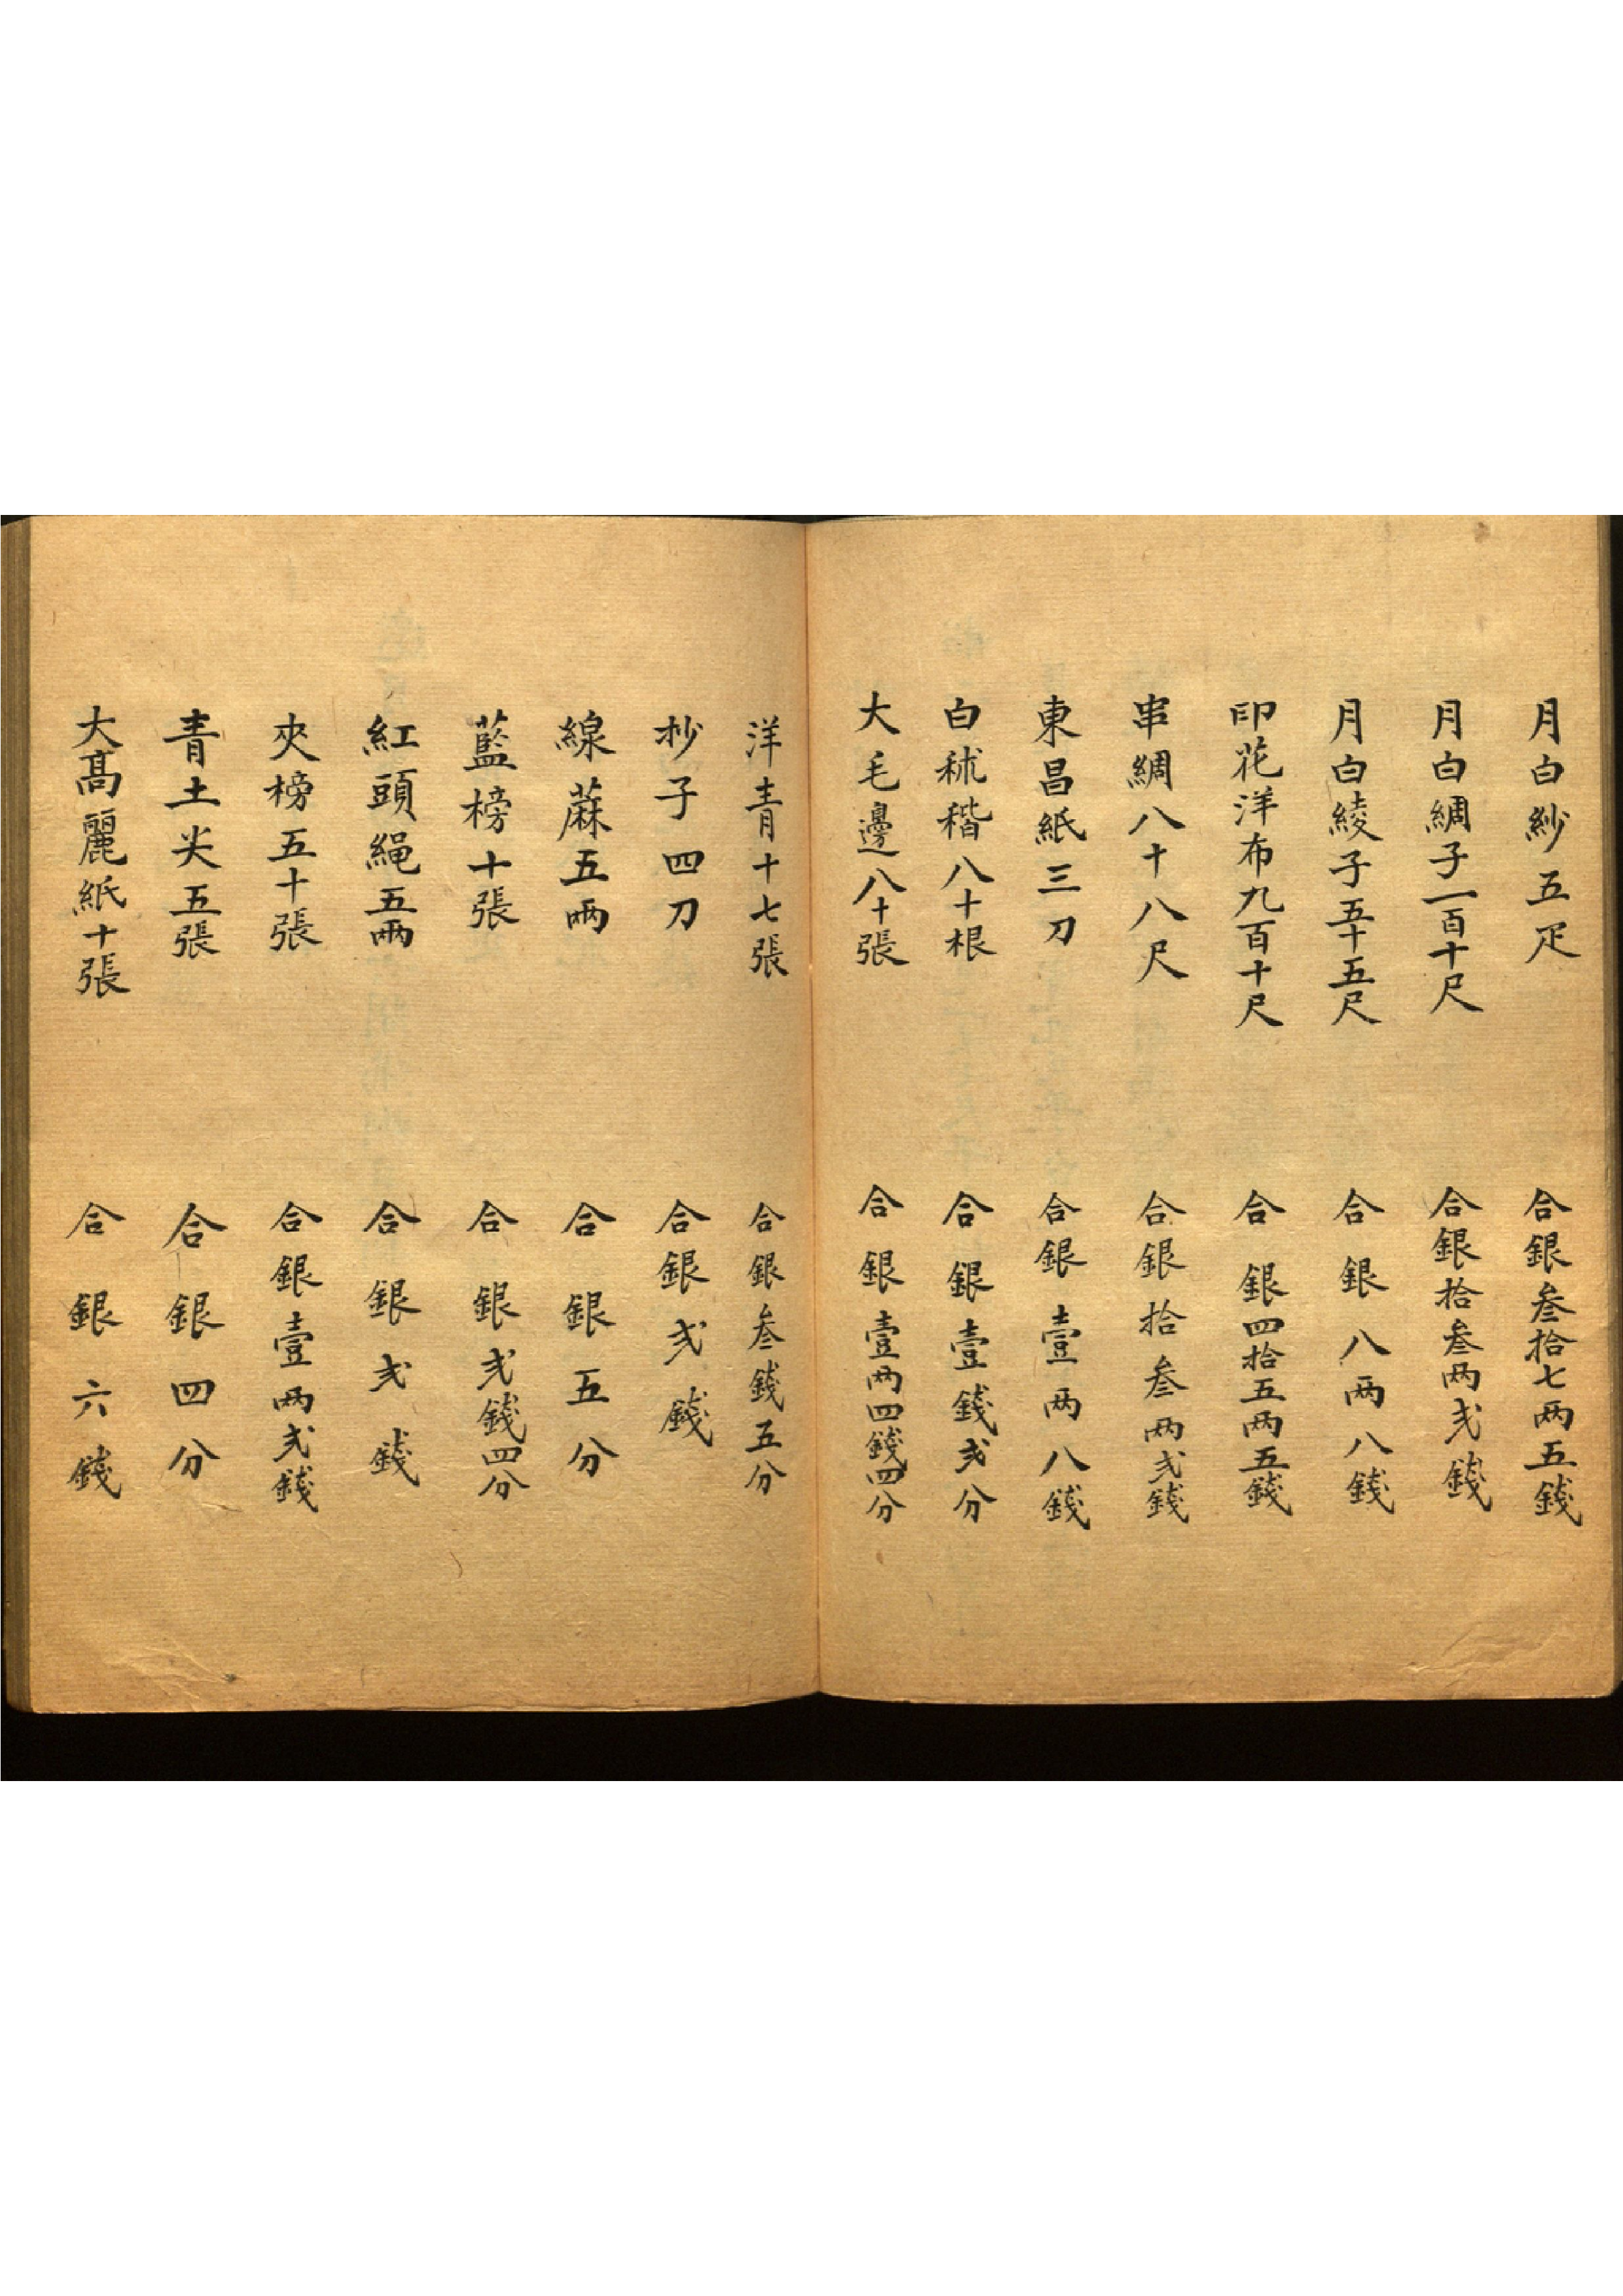 月白紗五疋 合銀叁拾七两五錢
月白綢子一百十尺 合銀拾叁两弍錢
月白綾子五十五尺 合銀八两八錢
印花洋布九百十尺 合銀四拾五两五錢
串綢八十八尺 合銀拾叁两弍錢
東昌紙三刀 合銀壹两八錢
白秫稭八十根 合銀壹錢弍分
大毛邊八十張 合銀壹两四錢四分
洋青十七張 合銀叁錢五分
杪子四刀 合銀弍錢
線蔴五両 合銀五分
藍榜十張 合銀弍錢四分
紅頭繩五両 合銀弍錢
夾榜五十張 合銀壹两弍錢
青土尖五張 合銀四分
大髙麗紙十張 合銀六錢